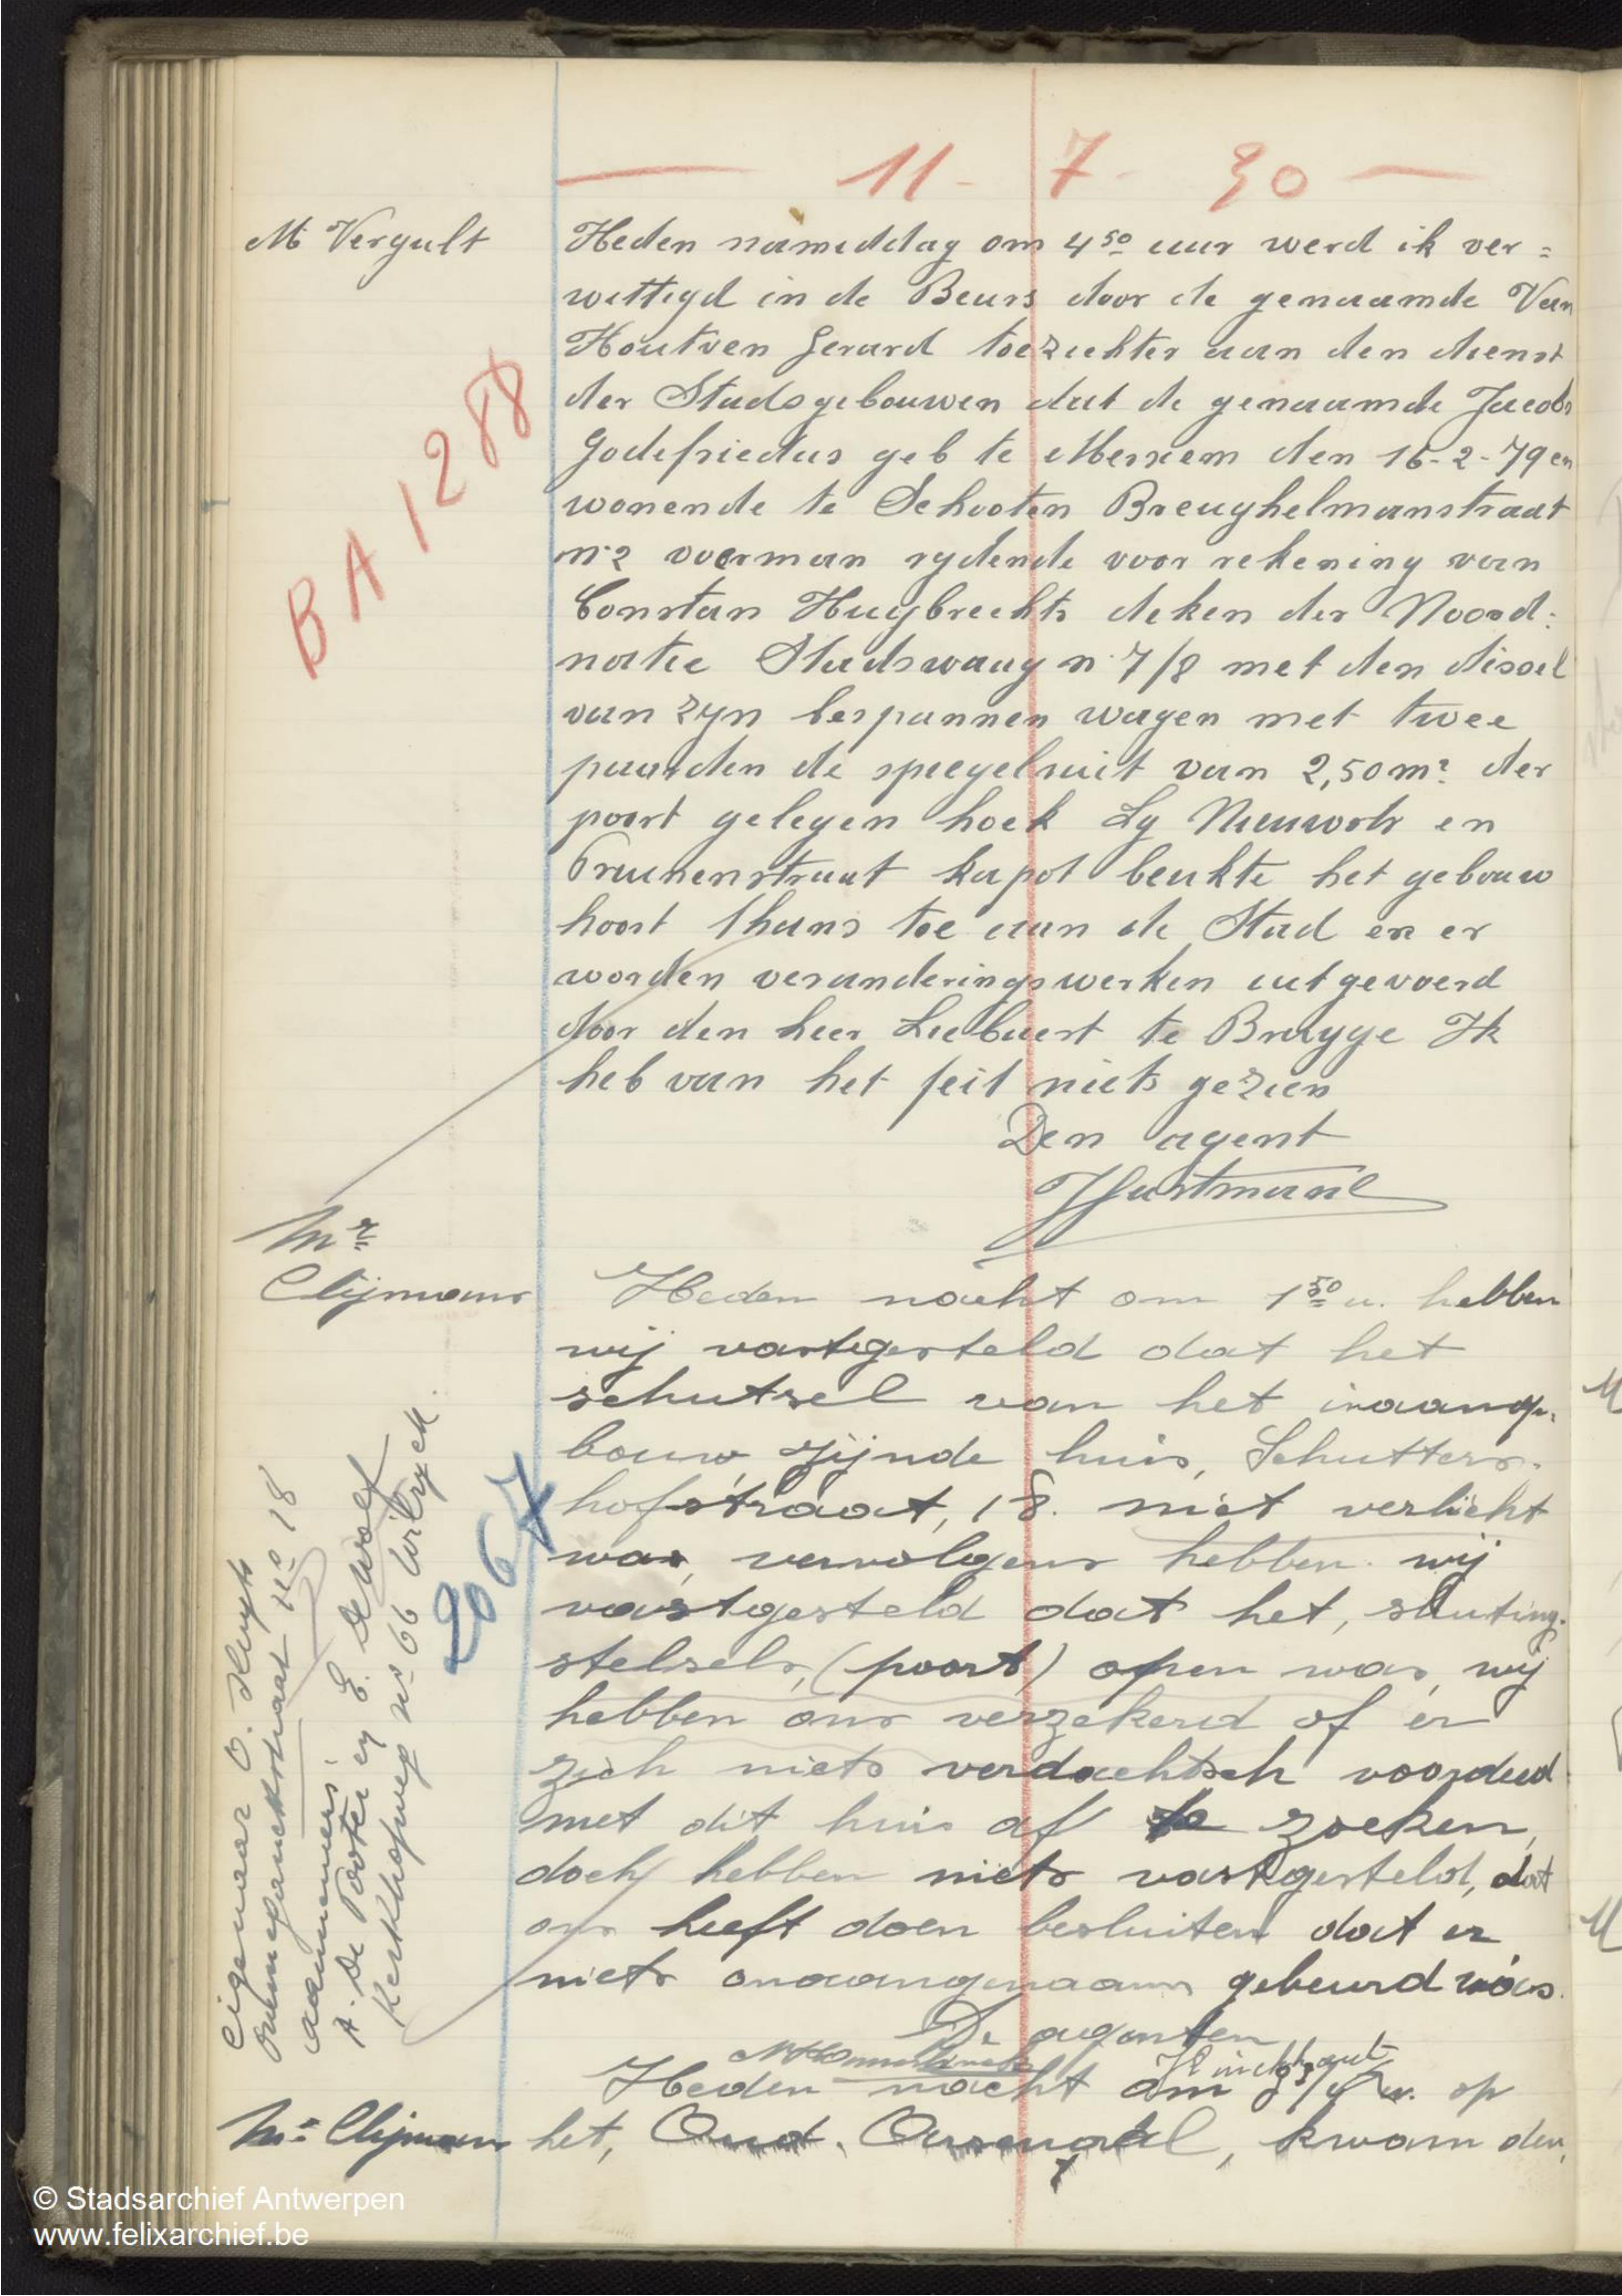 — 11 - 7 - 30 —
M Vergult
Heden namiddag om 4 50 uur werd ik ver =
wittigd in de Beurs door de genaamde Van
Houtven Gerard toezichter aan den dienst
der Stadsgebouwen dat de genaamde Jacobs
Godefriedus geb te Merxem den 16-2-79 en
wonende te Schooten Breughelmanstraat
n° 2 voerman rydende voor rekening van
Constan Huybrechts deken der Noord =
natie Stadswaag n° 7/8 met den dissel
van zyn bespannen wagen met twee
paarden de spiegelruit van 2,50 m² der
poort gelegen hoek Lg Nieuwstr en
Pruinenstraat kapot beukte het gebouw
hoort thans toe aan de Stad en er
worden veranderingswerken uitgevoerd
door den heer Liebaert te Brugge Ik
heb van het feit niets gezien
Den agent
Hartmann
BA 1288
Mr
Clijmans
Heden nacht om 1 50 u. hebben
wij vastgesteld dat het
schutsel van het inaang-
bouw zijnde huis, Schutters-
hofstraat, 18. niet verlicht
was, vervolgens hebben wij
vastgesteld dat het, sluting-
stelsels, (poort) open was, wij
hebben ons verzekerd of er
zich niets verdachtsch voordeed
met dit huis af te zoeken,
doch hebben niets vastgesteld, dat
ons heeft doen besluiten dat er
niets onaangenaams gebeurd was.
De agenten
2067
eigenaar O.
n° 18
aannemers:
A. De Pooter en E. De Wolf
Kerkhofweg n° 66 Wilryck.
Mr Clijmans
Heden nacht om 3/4 u. op
het, Oud. Arsenaal, kwam den,
© Stadsarchief Antwerpen
www.felixarchief.be